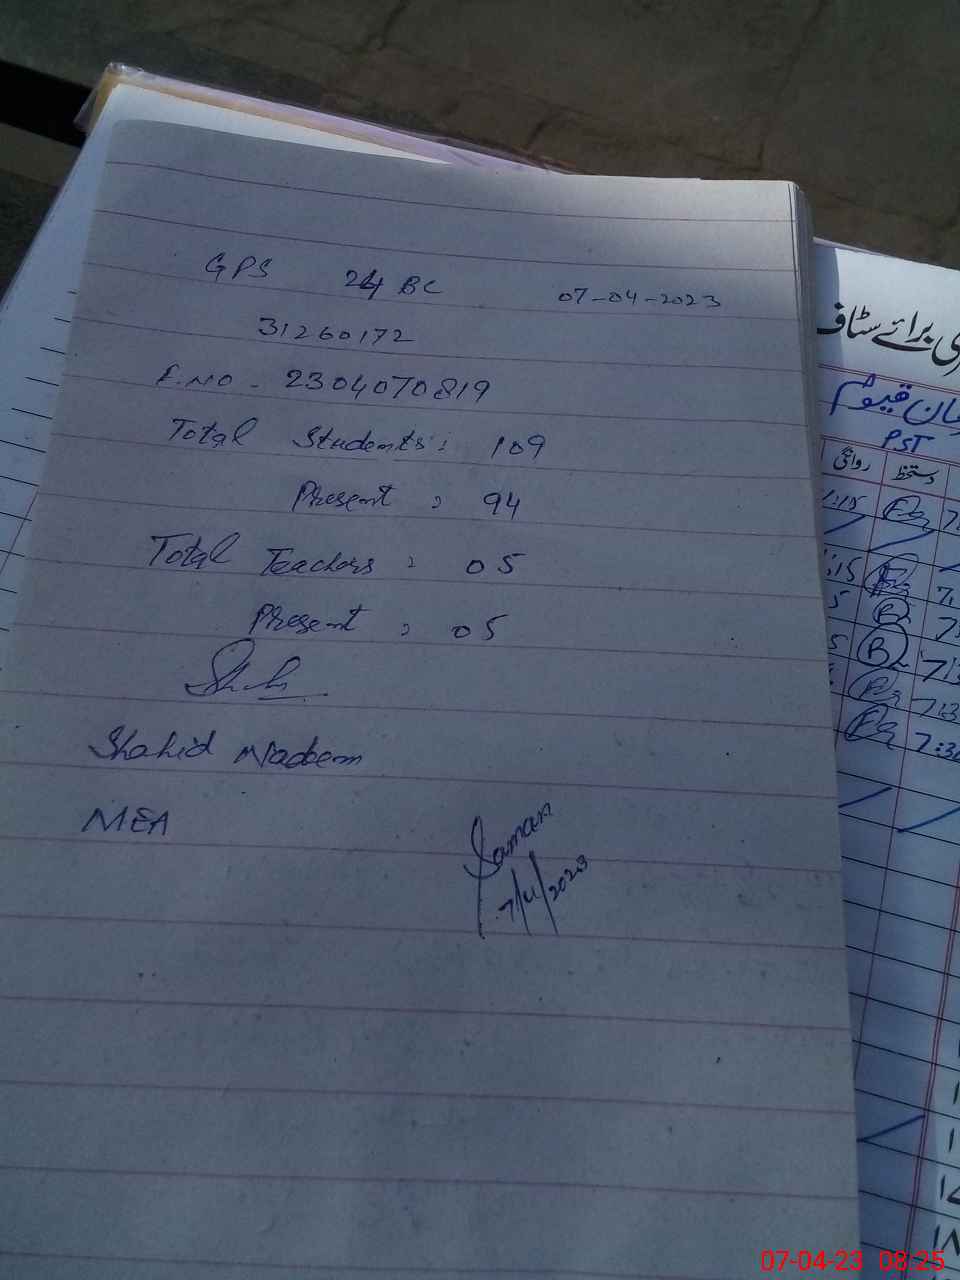 GPS 24 BC 07-04-2023
31260172
F.NO - 2304070819
Total Students: 109
Present : 94
Total Teachers : 05
Present : 05
Shahid Nadeem
MEA
7/4/2023
برائے سٹاف
قیوم
PST
روانگی دستخط
07-04-23 08:25